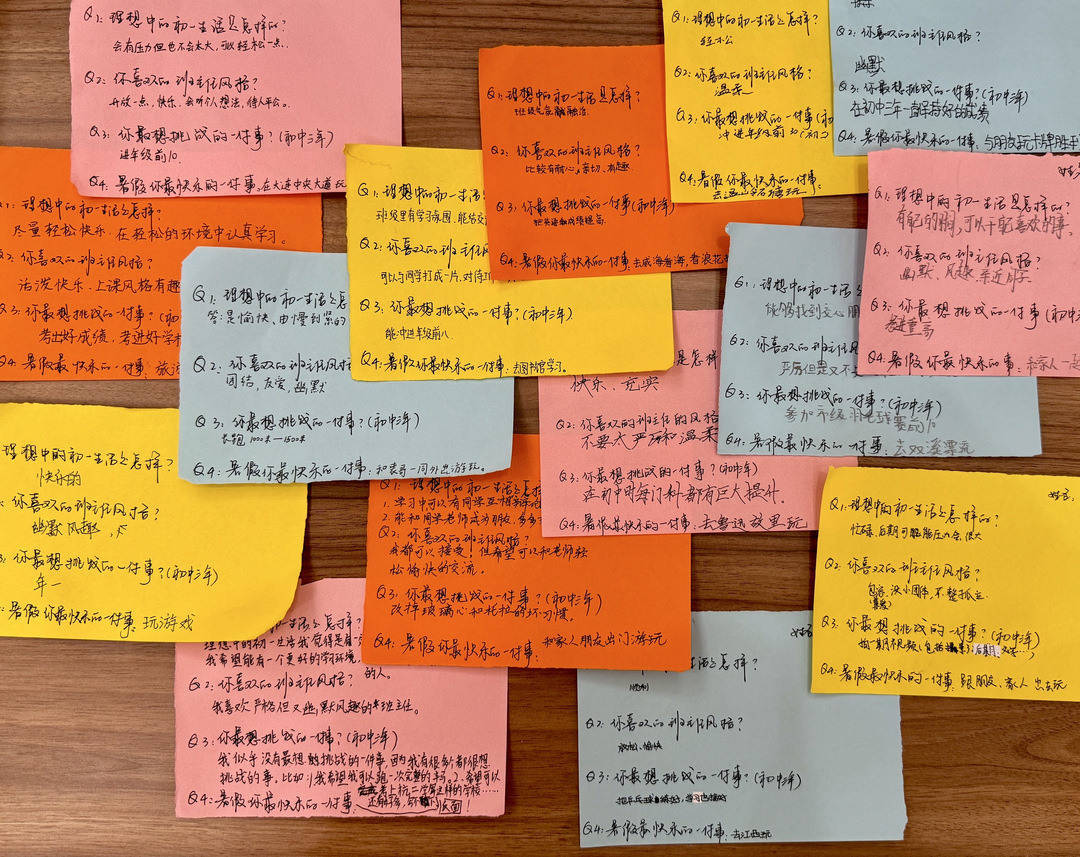 Q1: 理想中的初一生活是怎样的?
会有压力但也不会太大,可以轻松一点..
Q2: 你喜欢的班主任风格?
开放一点,快乐,会听个人想法,待人平公。
Q3: 你最想挑战的一件事?(初中三年)
进年级前10.
Q4: 暑假你最快乐的一件事:在大连中央大道玩
Q1: 理想中的初一生活是怎样?
班级气氛融融洽.
Q2: 你喜欢的班主任风格?
比较有耐心,亲切,有趣.
Q3: 你最想挑战的一件事?(初中三年)
把英语成绩提高.
Q4: 暑假你最快乐的一件事:去威海看海,看浪花
Q1: 理想中的初一生活是怎样?
轻松
Q2: 你喜欢的班主任风格?
温柔
Q3: 你最想挑战的一件事?(初
冲进年级前
Q4: 暑假你最快乐的一件事:
Q2: 你喜欢的班主任风格?
幽默
Q3: 你最想挑战的一件事?(初中三年)
在初中三年一直保持好的成绩
Q4: 暑假你最快乐的一件事:与朋友玩卡牌
理想中的初一生活是怎样?
尽量轻松快乐.在轻松的环境中认真学习。
你喜欢的班主任风格?
活泼快乐、上课风格有趣
Q3: 你最想挑战的一件事?(初
考出好成绩,考进好学校
Q4: 暑假你最快乐的一件事:旅游
Q1: 理想中的初一生活
班级里有学习氛围,能结交
Q2: 你喜欢的班主任风格
可以与同学打成一片,对待
Q3: 你最想挑战的一件事?(初中三年)
能冲进年级前八.
Q4: 暑假你最快乐的一件事:去图书馆学习。
Q1: 理想中的初一生活是怎
答:是愉快、由慢到紧的
Q2: 你喜欢的班主任风
团结,友爱,幽默
Q3: 你最想挑战的一件事?(初中三年)
长跑 1000米—1500米
Q4: 暑假你最快乐的一件事:和表哥一同外出游玩。
Q1: 理想中的初一生活
能够找到交心朋
Q2: 你喜欢的班主任风
严厉但是又不
Q3: 你最想挑战的一件事?(初中三年)
参加市级羽毛球赛前10
Q4: 暑假你最快乐的一件事:去双溪漂流
Q1: 理想中的初一生活是怎样的?
有自己的时间,可以干自己喜欢的事。
Q2: 你喜欢的班主任风格?
幽默、风趣、亲近同学.
Q3: 你最想挑战的一件事?(初中三年)
考进重高
Q4: 暑假你最快乐的一件事:和家人一起
是怎样
快乐、充实
Q2: 你喜欢的班主任的风格
不要太严厉和温柔
Q3: 你最想挑战的一件事?(初中三年)
在初中时每门科都有巨大提升.
Q4: 暑假你最快乐的一件事:去鲁迅故里玩
理想中的初一生活是怎样?
快乐的
你喜欢的班主任风格?
幽默风趣,
你最想挑战的一件事?(初中三年)
年一
暑假你最快乐的一件事:玩游戏
Q1: 理想中的初一生活是怎样
1. 学习中可以有同学互相
2. 能和同学老师成为朋友,多多
Q2: 你喜欢的班主任风格?
我都可以接受!但希望可以和老师轻
松愉快的交流。
Q3: 你最想挑战的一件事?(初中三年)
改掉玻璃心和拖拉的坏习惯。
Q4: 暑假你最快乐的一件事:和家人朋友出门游玩
Q1: 理想中的初一生活是怎样的?
忙碌,后期可能压力会很大
Q2: 你喜欢的班主任风格?
包容,没小团体,不整孤立.
Q3: 你最想挑战的一件事?(初中三年)
Q4: 暑假你最快乐的一件事:跟朋友、家人出去玩
生活是怎样?
理想中的初一生活我觉得是有
我希望能有一个更好的学习环境,
的人。
Q2: 你喜欢的班主任风格?
我喜欢严格但又幽默风趣的班主任。
Q3: 你最想挑战的一件事?(初中三年)
我似乎没有最想挑战的一件事,因为我有很多都很想
挑战的事。比如:1.我希望我可以跑一次完整的半马。2.希望可以
考上杭二学军这样的学校……
还有许多,写不下了
Q4: 暑假你最快乐的一件事:
生活是怎样?
顺利
Q2: 你喜欢的班主任风格?
放松、愉快
Q3: 你最想挑战的一件事?(初中三年)
把乒乓球练好,学习也搞好
Q4: 暑假你最快乐的一件事:去江西玩